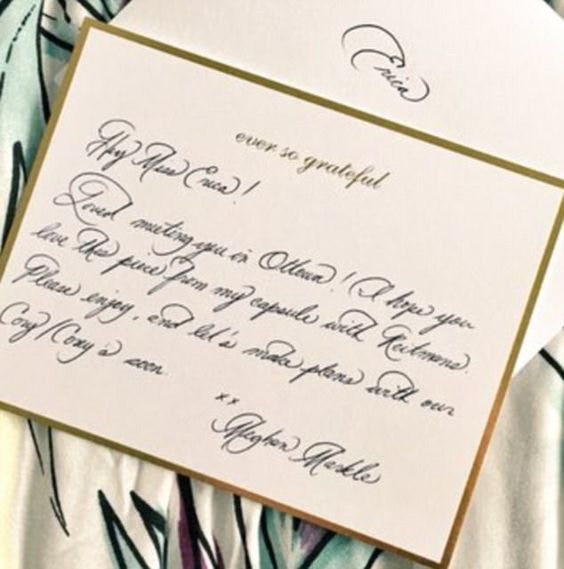 Erica
ever so grateful
Hey Miss Erica!
Loved meeting you in Ottawa! I hope you
love this piece from my capsule with Reitmans.
Please enjoy, and let's make plans with our
soon
xx
Meghan Markle